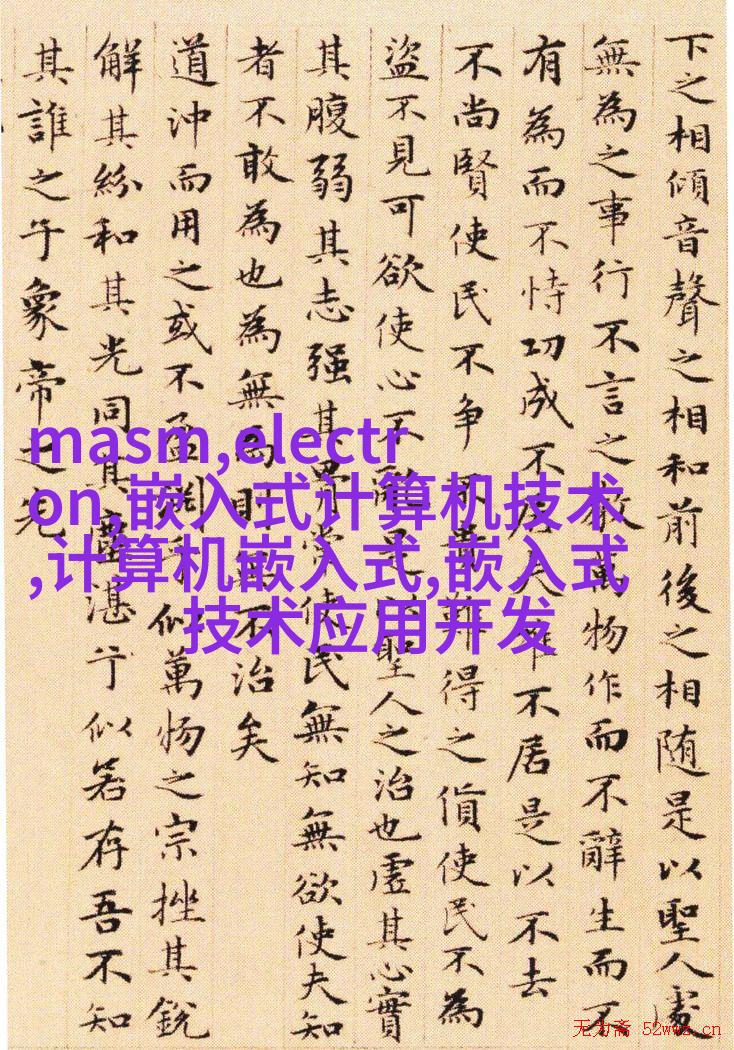 下之相傾音聲之相和前後之相随是以聖人處
無為之事行不言之教萬物作而不辭生而不
有為而不恃功成不居夫唯不居是以不去
不尚賢使民不争不貴難得之貨使民不為
盜不見可欲使心不亂是以聖人之治也虛其心實
其腹弱其志强其骨常使民無知無欲使夫知
者不敢為也為無為則無不治矣
道沖而用之或不盈淵乎似萬物之宗挫其銳
解其紛和其光同其塵湛兮似若存吾不知
其誰之子象帝之先
masm,electr
on,嵌入式计算机技术
,计算机嵌入式,嵌入式
技术应用开发
无为斋 52wwz.cn